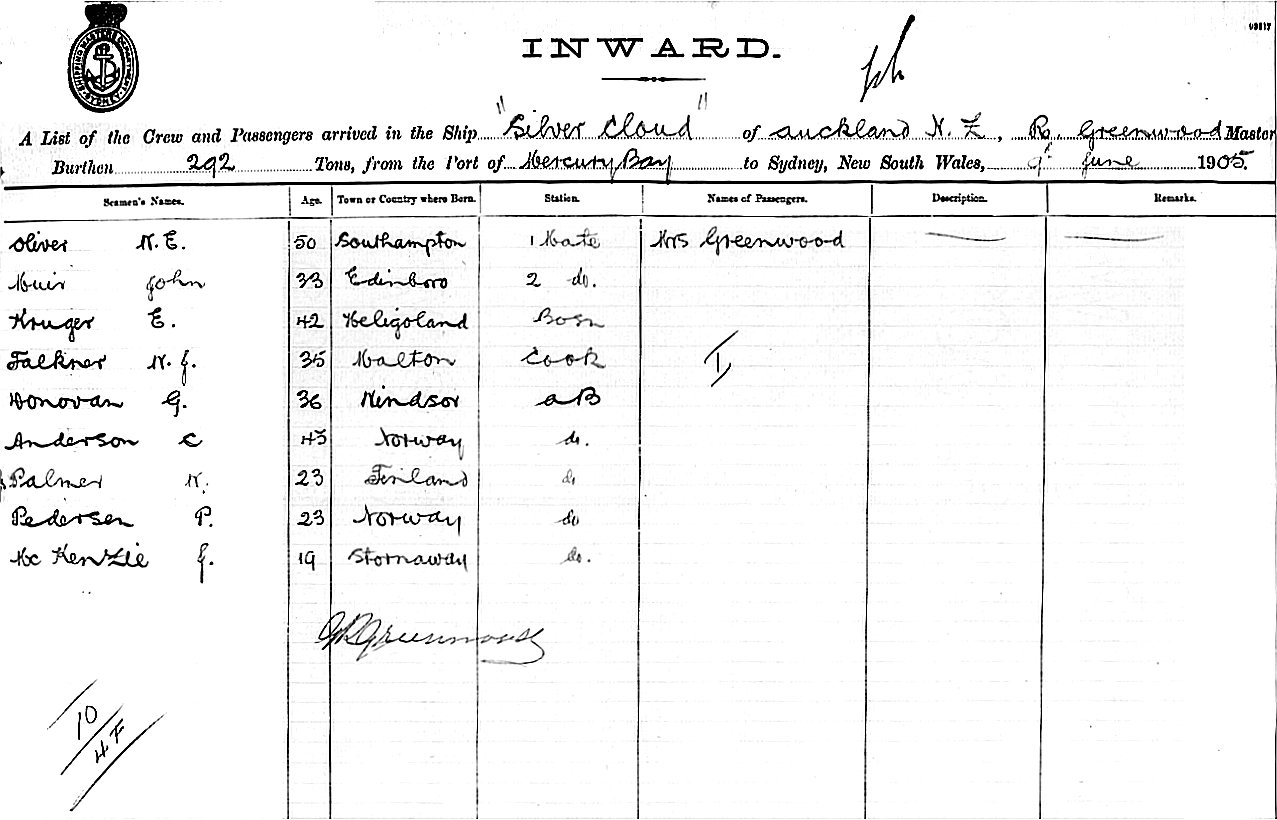 SHIPPING MASTERS DEPARTMENT SYDNEY
INWARD.
A List of the Crew and Passengers arrived in the Ship "Silver Cloud" of Auckland N. Z., R. Greenwood Master
Burthen 292 Tons, from the Port of Mercury Bay to Sydney, New South Wales, 9th June 1905.
Seamen's Names. Age. Town or Country where Born. Station. Names of Passengers. Description. Remarks.
Oliver W. E. 50 Southampton 1 Mate Mrs Greenwood
Muir John 33 Edinboro 2 do.
Kruger E. 42 Heligoland Bosn
Falkner W. J. 35 Malton Cook
Donovan G. 36 Windsor AB
Anderson C 45 Norway do.
Palmer W. 23 Finland do
Pedersen P. 23 Norway do
McKenzie J. 19 Stornaway do.
Greenwood
10
4 F